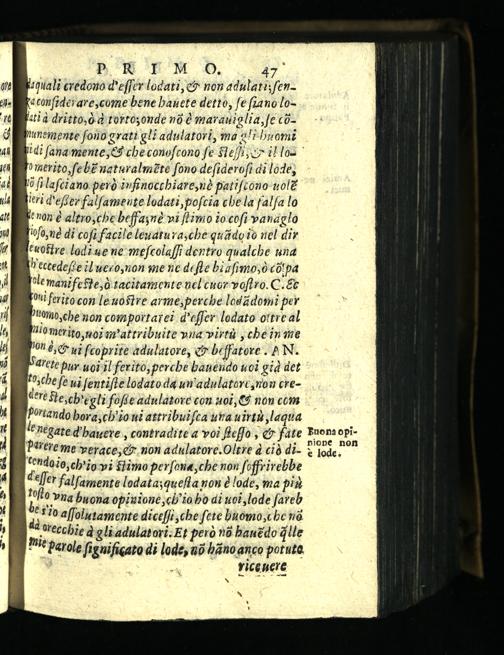 PRIMO. 47
da quali credono d'esser lodati, & non adulati; sen-
za considerare, come bene hauete detto, se siano lo-
dati à dritto, ò à torto; onde nō è marauiglia, se cō-
munemente sono grati gli adulatori, ma gli huomi
ni di sana mente, & che conoscono se stessi, & il lo-
ro merito, se bē naturalmēte sono desiderosi di lode,
nō si lasciano però infinocchiare, nè patiscono uolē
tieri d'esser falsamente lodati, poscia che la falsa lo
de non è altro, che beffa; nè vi stimo io cosi vanaglo
rioso, nè di cosi facile leuatura, che quādo io nel dir
le uostre lodi ue ne mescolassi dentro qualche una
ch'eccedesse il uero, non me ne deste biasimo, ò cō pa
role manifeste, ò tacitamente nel cuor vostro. C. Ec
coui ferito con le uostre arme, perche lodādomi per
huomo, che non comportarei d'esser lodato oltre al
mio merito, uoi m'attribuite vna virtù, che in me
non è, & ui scoprite adulatore, & beffatore. AN.
Sarete pur uoi il ferito, perche hauendo uoi già det
to, che se ui sentiste lodato da un'adulatore, non cre-
dereste, ch'egli fosse adulatore con uoi, & non com
portando hora, ch'io ui attribuisca una uirtù, laqua
le negate d'hauere, contradite a voi stesso, & fate
parere me verace, & non adulatore. Oltre à ciò di-
cendo io, ch'io vi stimo persona, che non soffrirebbe
d'esser falsamente lodata; questa non è lode, ma più
tosto vna buona opinione, ch'io ho di uoi, lode sareb
be s'io assolutamente dicessi, che sete huomo, che nō
dà orecchie à gli adulatori. Et però nō hauēdo q̄lle
mie parole significato di lode, nō hāno anco potuto
riceuere
Buona opi-
nione non
è lode.